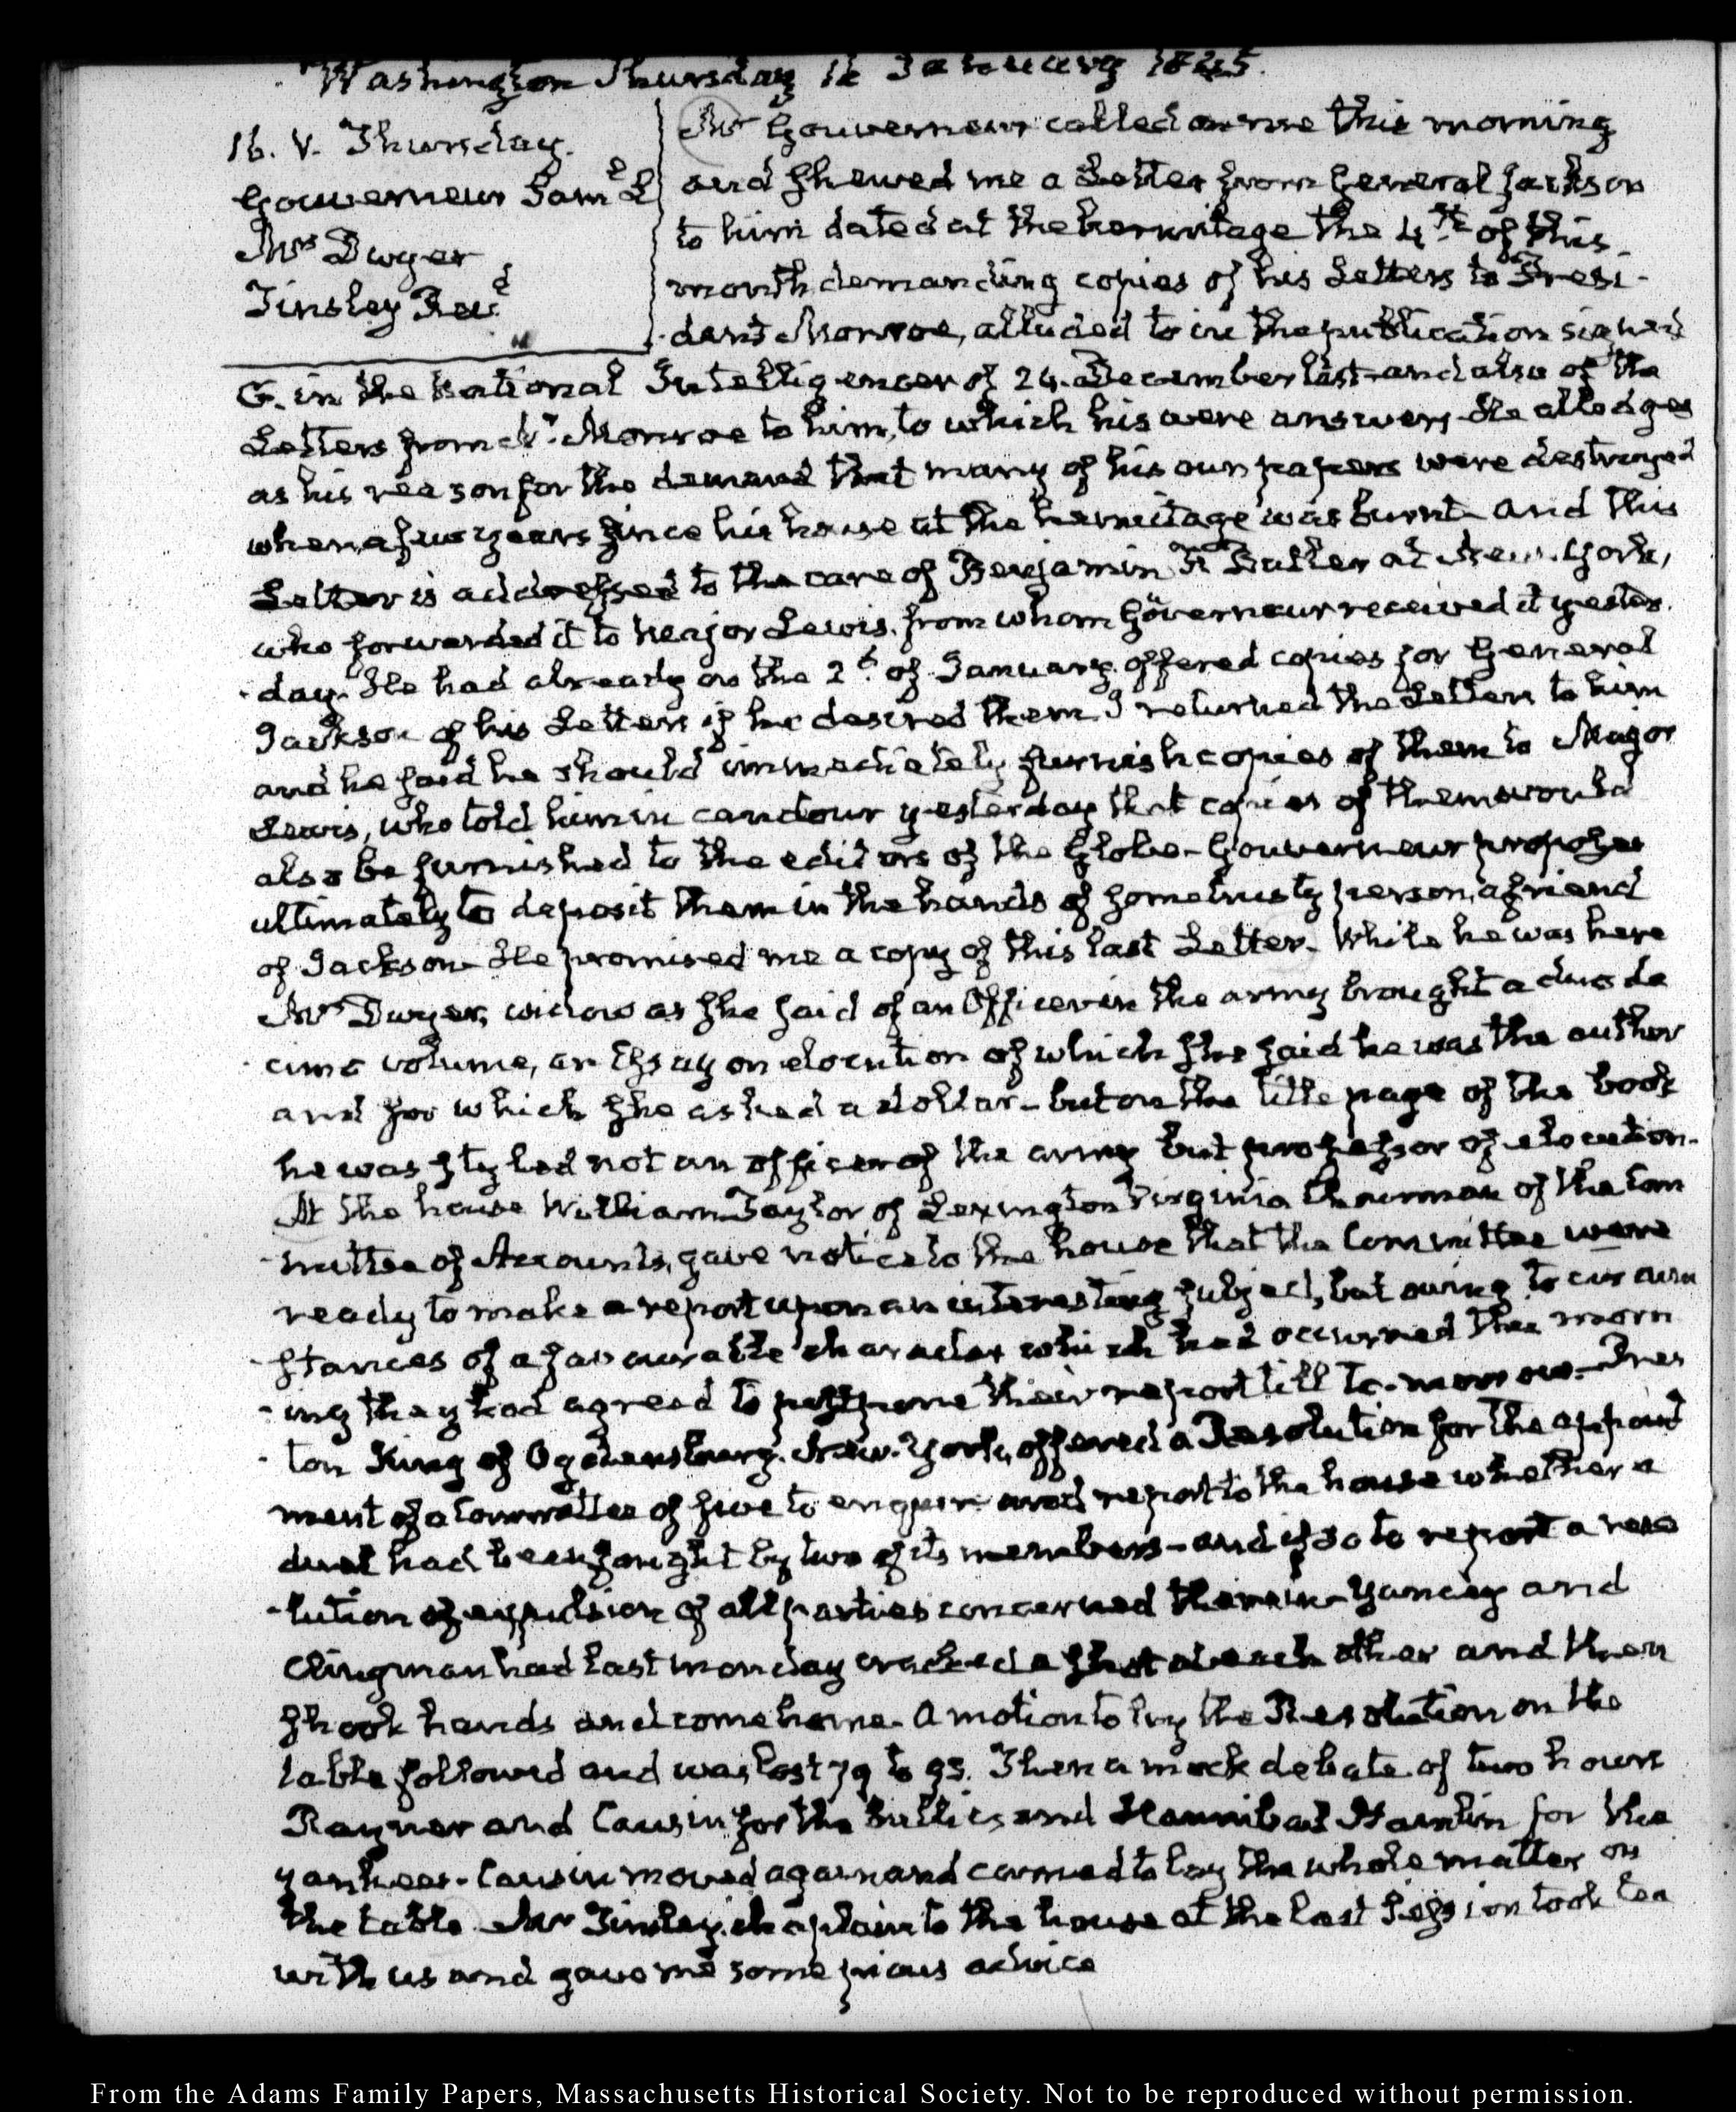 Washington Thursday 16 January 1845.
16. V. Thursday.
Gouverneur Sam.l L
Mrs Dwyer
Tinsley Rev.d
Mr Gouverneur called on me this morning
and shewed me a Letter from General Jackson
to him dated at the hermitage the 4th of this
month demanding copies of his Letters to Presi-
dent Monroe, alluded to in the publication signed
G. in the National Intelligencer of 24. December last and also of the
Letters from Mr. Monroe to him, to which his were answers. He alledges
as his reason for the demand that many of his own papers were destroyed
when a few years since his house at the hermitage was burnt and this
Letter is addressed to the care of Benjamin F Butler at New-York,
who forwarded it to Major Lewis, from whom Gouverneur received it yester-
day. He had already on the 2d of January offered copies for General
Jackson of his Letters if he desired them. I returned the Letter to him
and he said he should immediately furnish copies of them to Major
Lewis, who told him in candour yesterday that copies of them would
also be furnished to the editors of the Globe. Gouverneur proposes
ultimately to deposit them in the hands of some trusty person, a friend
of Jackson. He promised me a copy of this last Letter. While he was here
Mrs Dwyer, widow as she said of an Officer in the army brought a duode
cimo volume, an Essay on elocution of which she said he was the author
and for which she asked a dollar - but on the title page of the book
he was styled not an officer of the army but professor of elocution.
At the house William Taylor of Lexington Virginia Chairman of the Com
mittee of Accounts, gave notice to the house that the Committee were
ready to make a report upon an interesting subject, but owing to circum
stances of a favourable character which had occurred this morn
ing they had agreed to postpone their report till to-morrow. Pres
ton King of Ogdensburg. New-York, offered a Resolution for the appoint
ment of a Committee of five to enquire and report to the house whether a
duel had been fought by two of its members - and if so to report a reso
lution of expulsion of all parties concerned therein - Yancey and
Clingman had last monday cracked a shot at each other and then
shook hands and come home. A motion to lay the Resolution on the
table followed and was lost 79 to 93. Then a mock debate of two hours
Rayner and Causin for the bullies and Hannibal Hamlin for the
yankees. Causin moved again and carried to lay the whole matter on
the table. Mr Tinsley, chaplain to the house at the last session took tea
with us and gave me some pious advice
From the Adams Family Papers, Massachusetts Historical Society. Not to be reproduced without permission.